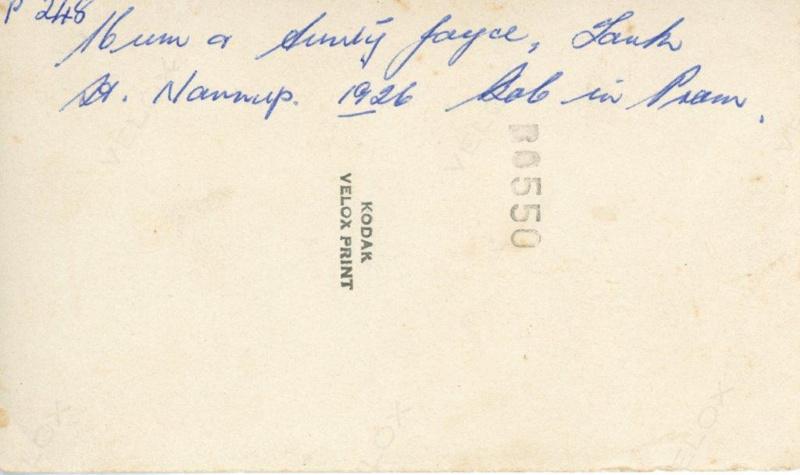 P 248
Mum & Aunty Joyce, Tank
St. Nannup. 1926 Bob in Pram.
KODAK
VELOX PRINT
B6550
VELOX
VELOX
VELOX
VELOX